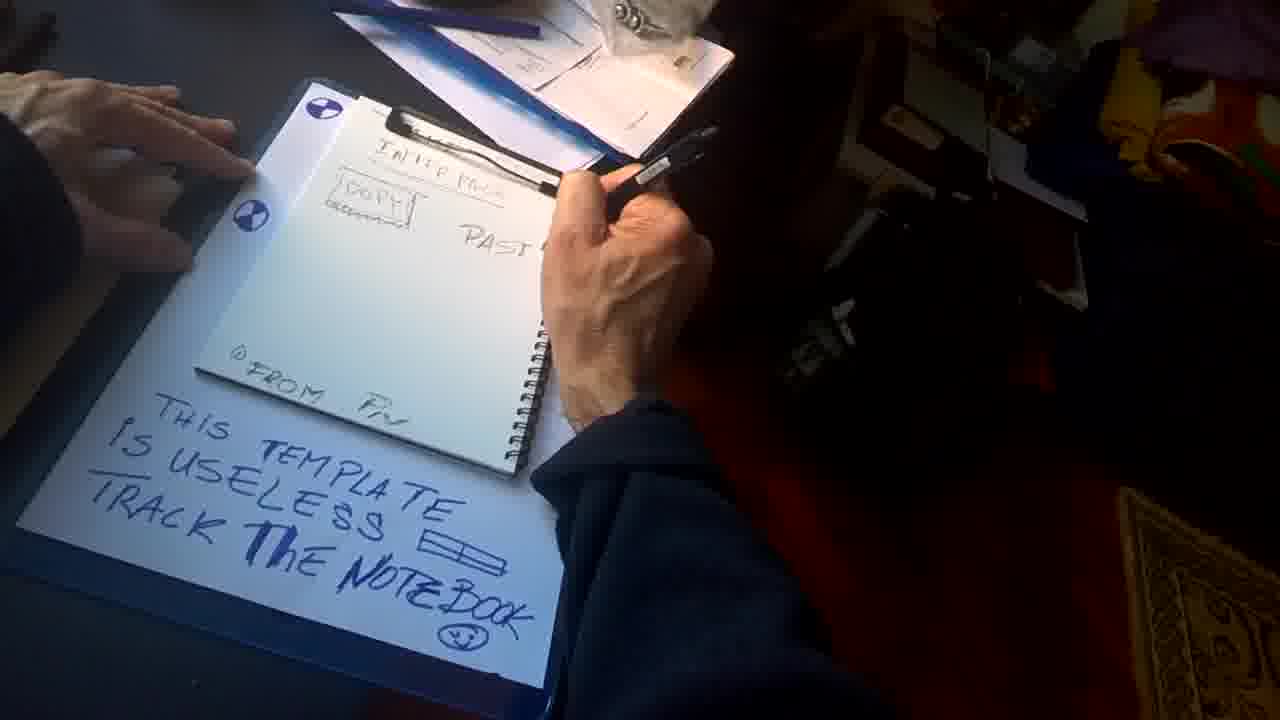 COPY
PAST
① FROM
THIS TEMPLATE
IS USELESS
TRACK THE NOTEBOOK